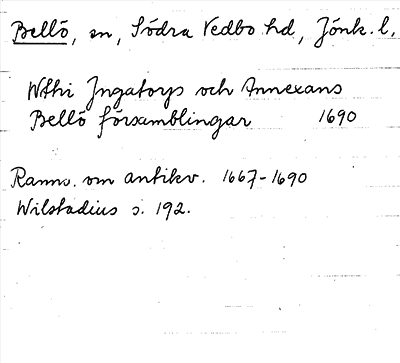 Bellö, sn, Södra Vedbo hd, Jönk. l.
Uthi Ingatorps och Annexans
Bellö församblingar 1690
Ranns. om antikv. 1667-1690
Wilstadius s. 192.